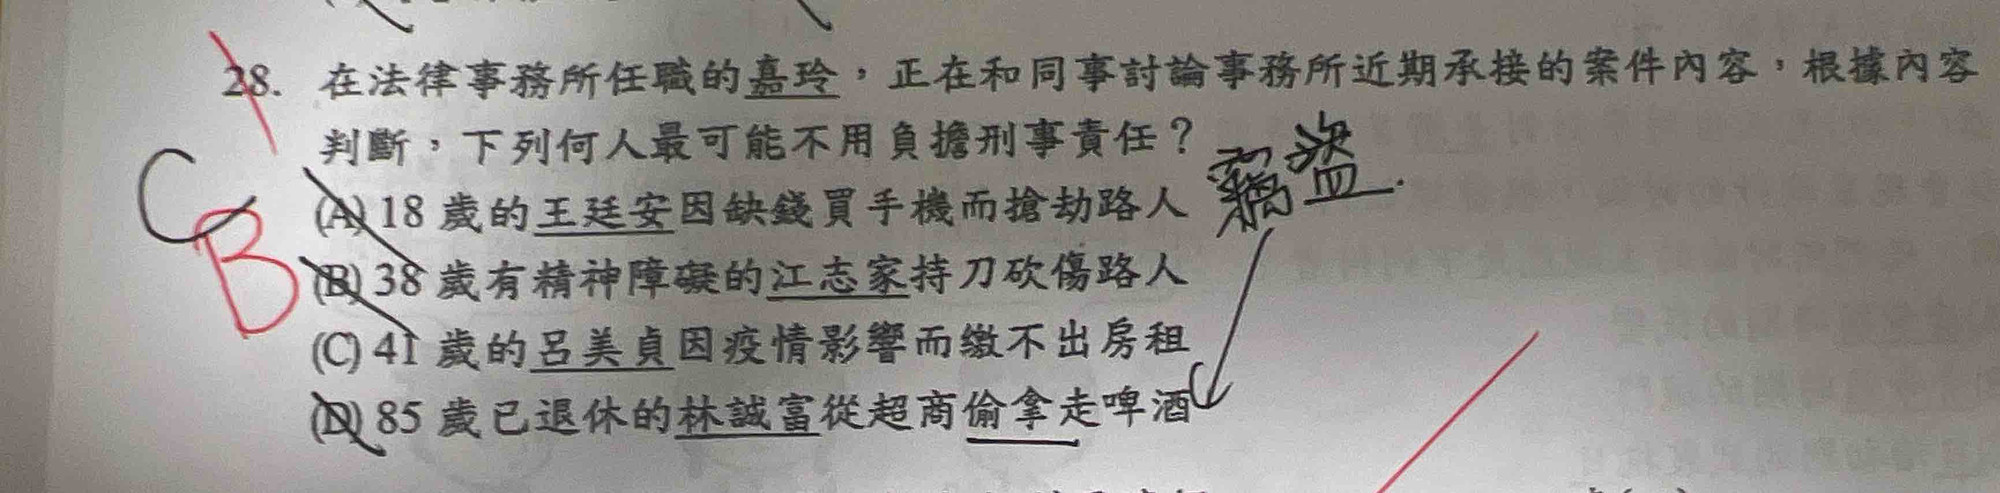 28. 在法律事務所任職的嘉玲，正在和同事討論事務所近期承接的案件內容，根據內容
判斷，下列何人最可能不用負擔刑事責任？
竊盜.
C
B
(A) 18 歲的王廷安因缺錢買手機而搶劫路人
(B) 38 歲有精神障礙的江志家持刀砍傷路人
(C) 41 歲的呂美貞因疫情影響而繳不出房租
(D) 85 歲已退休的林誠富從超商偷拿走啤酒